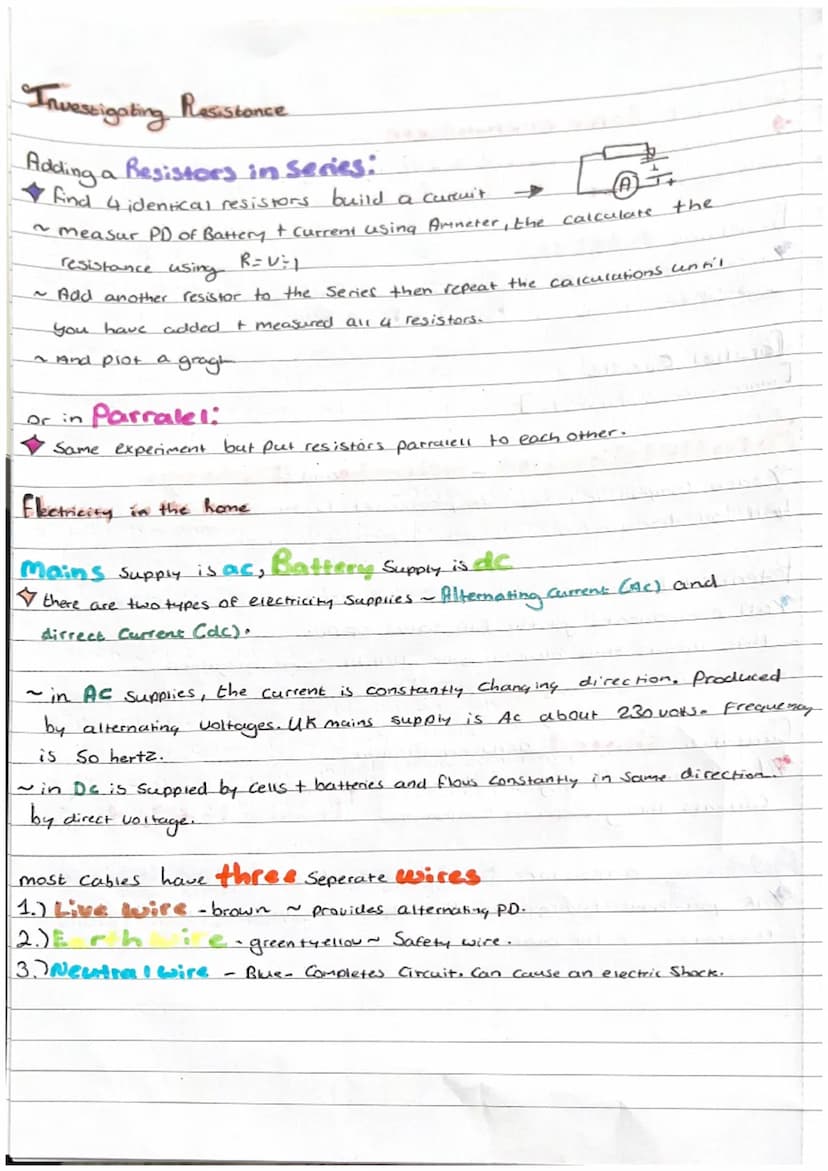 Investigating Resistance
Adding a Resistors in Series:
find 4 identical resistors build a circuit →
A +
~ measur PD of Battery + current using Ammeter, the calculate the
resistance using R=V÷I
~ Add another resistor to the Series then repeat the calculations until
you have added + measured all 4 resistors.
~ And plot a gragh
or in Parralel:
Same experiment but put resistors parralell to each other.
Electricity in the home
Mains Supply is ac, Battery Supply is dc
there are two types of electricity supplies ~ Alternating Current (Ac) and
dirrect Current (dc).
~ in AC supplies, the current is constantly changing direction. Produced
by alternating voltages. UK mains supply is Ac about 230 volts. Frequency
is 50 hertz.
~ in DC is Suppied by cells + batteries and flows constantly in same direction.
by direct voltage.
most cables have three Seperate wires
1.) Live wire - brown ~ provides alternating PD.
2.) Earth wire - green+yellow ~ Safety wire.
3.) Neutral wire - Blue - Completes Circuit. Can cause an electric Shock.